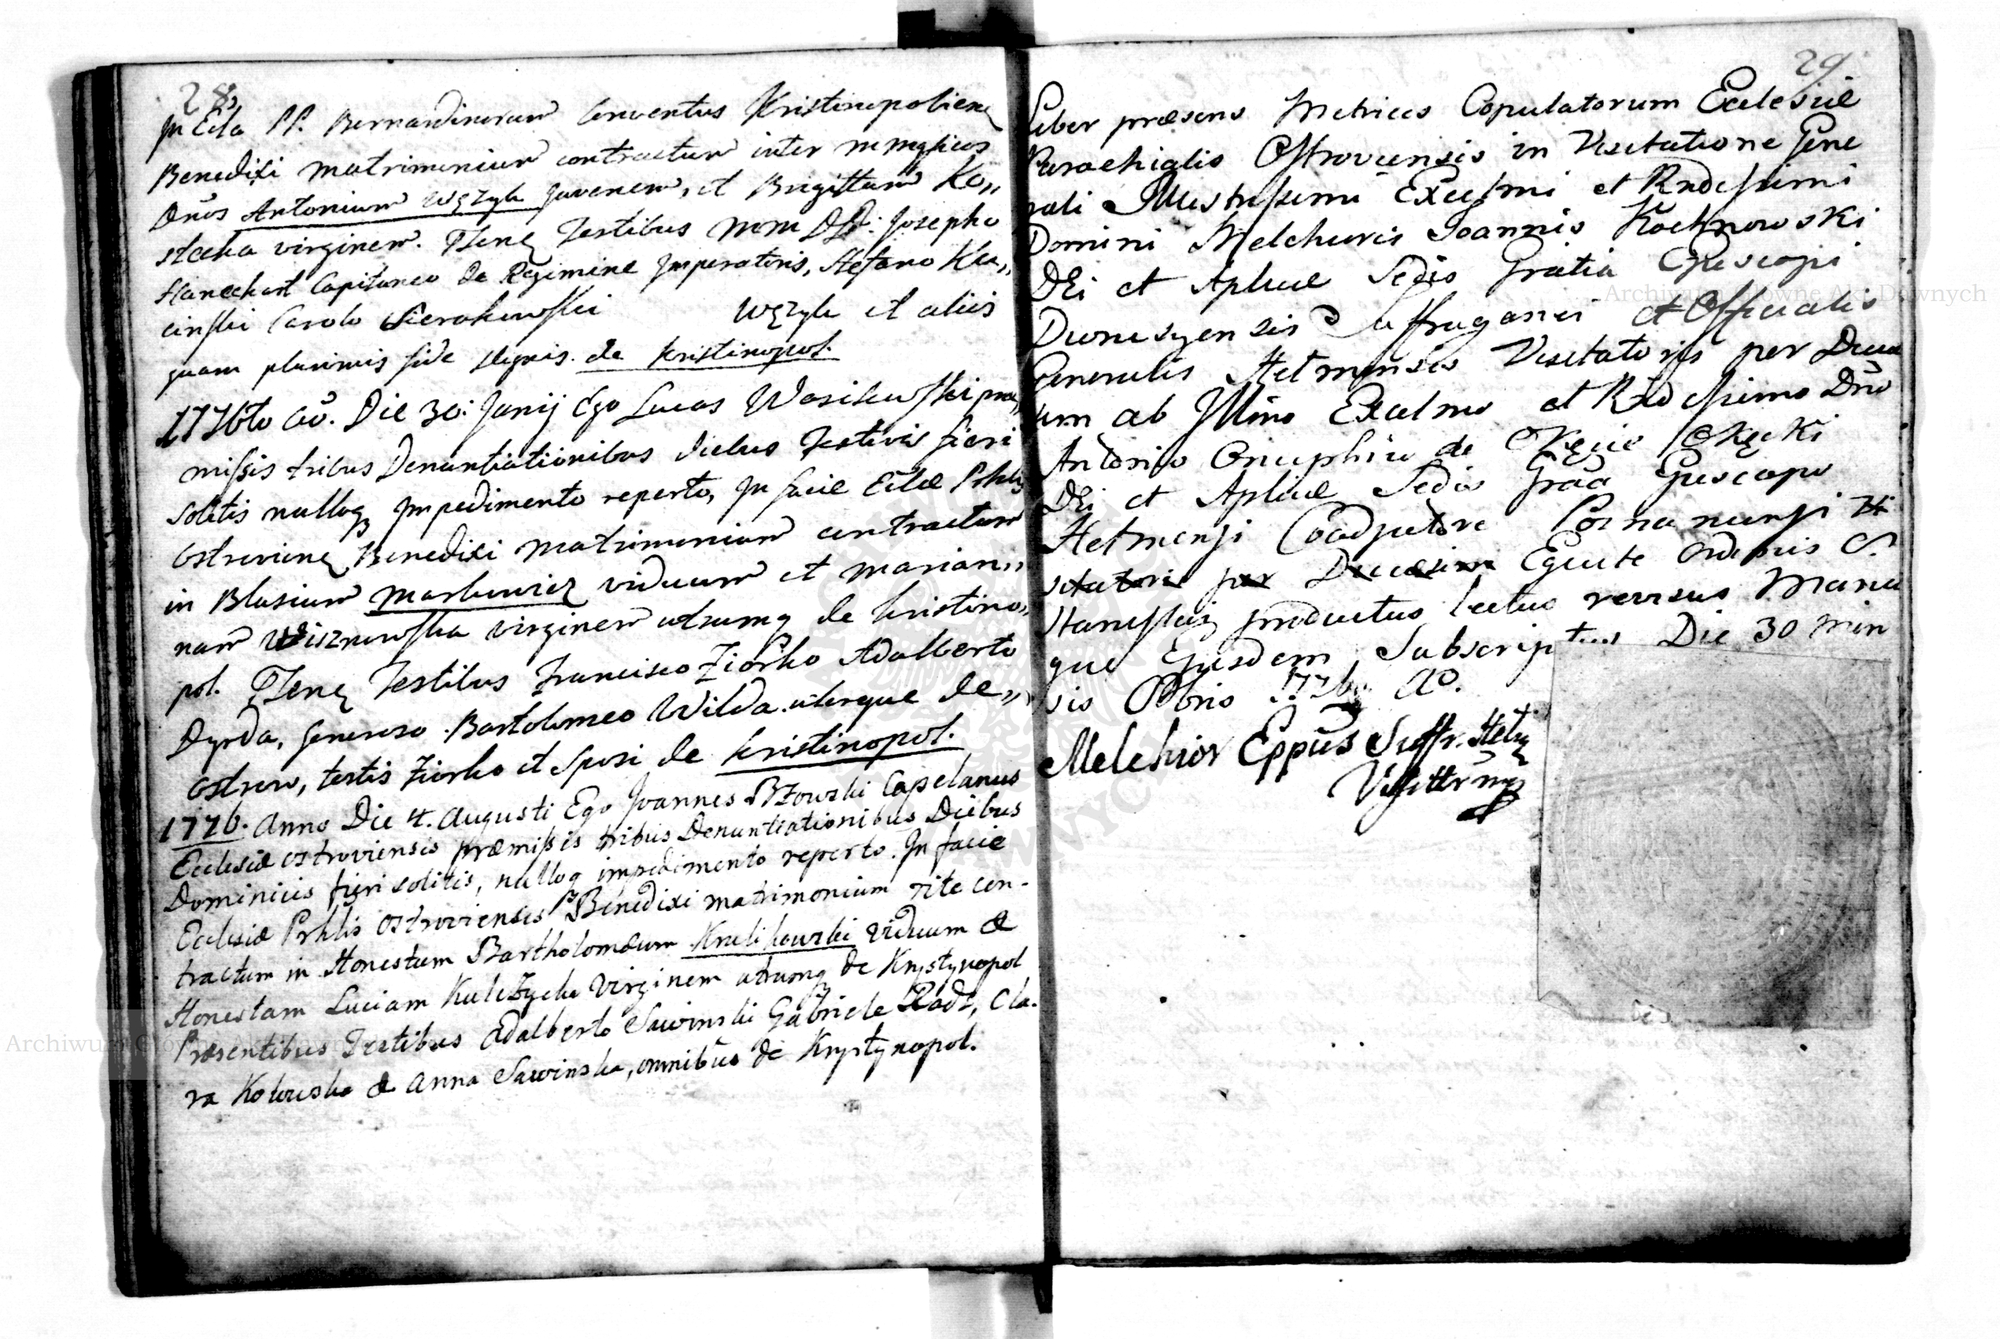 28
In Ecla PP. Bernardinorum Conventus Kristinopoliens
Benedixi matrimonium contractum inter
Dnos Antonium Węzyk juvenem, et Brigittam Ko„
stecka virginem. Testibus Josepho
Capitaneo de Regimine Imperatoris, Stefano Ku„
cinski Carolo Sierakowski Węzyk et aliis
quam plurimis fide dignis. de Kristinopol.
1776to Aō. Die 30: Junij Ego Lucas Wasilewski præ„
missis tribus Denuntiationibus diebus Festivis fieri
solitis nulloq impedimento reperto, In facie Eclæ Prhlis
Ostroviens Benedixi matrimonium contractum
in Blasium Markiewicz viduum et Marian„
nam Wisznowska virginem utrumq de Kristino„
pol. Testibus Francisco Ziorko Adalberto
Dyrda, Generoso Bartolomeo Wilda uterque de„
Ostrow, testis Ziorko et Sposi de Kristinopol.
1776. Anno Die 4. Augusti Ego Joannes Bzowski Capelanus
Ecclesiæ Ostroviensis præmissis tribus Denuntiationibus Diebus
Dominicis fieri solitis, nulloq impedimento reperto. In facie
Ecclesiæ Prhlis Ostroviensis Benedixi matrimonium rite con-
tractum in Honestum Bartholomæum Krulikowski viduum &
Honestam Luciam Kulczycka Virginem utrumq de Krystynopol
Præsentibus Testibus Adalberto Sawinski Gabriele Radz, Cla-
ra Kotowska & Anna Sawinska, omnibus de Krystynopol.
29
Liber præsens Metrices Copulatorum Ecclesiæ
Parochialis Ostroviensis in Visitatione Gene
rali Illustrissimi Excelsmi et Rndissimi
Domini Melchioris Joannis Kochnowski
Dei et Aplicæ Sedis Gratia Episcopi
Dionisyensis Suffraganei et Officialis
Generalis Helmensis Visitatoris per Diæce
sim ab Illmo Excelmo et Rndissimo Dno
Antonio Onuphrio de Okęcie Okęcki
Dei et Aplicæ Sedis Graa Episcopo
Helmensi Coadjutore Posnanensi
Equite Ordinis S.
Stanislai productus lectus revisus Manu
que Ejusdem Subscriptus Die 30 Men
sis Octobris 1776 Aō.
Melchior Eppus Suffr. Hel